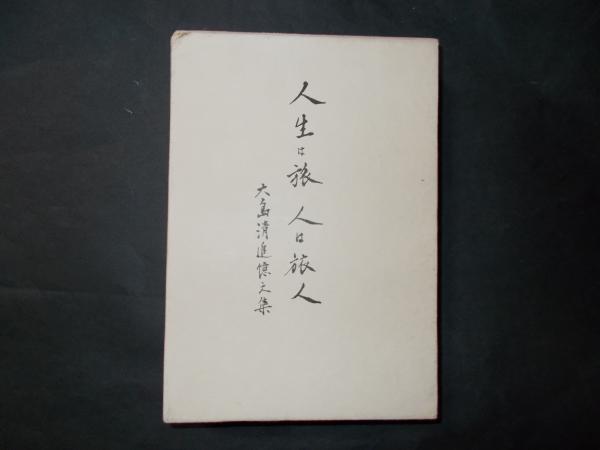 人生は旅 人は旅人
大島清追憶文集